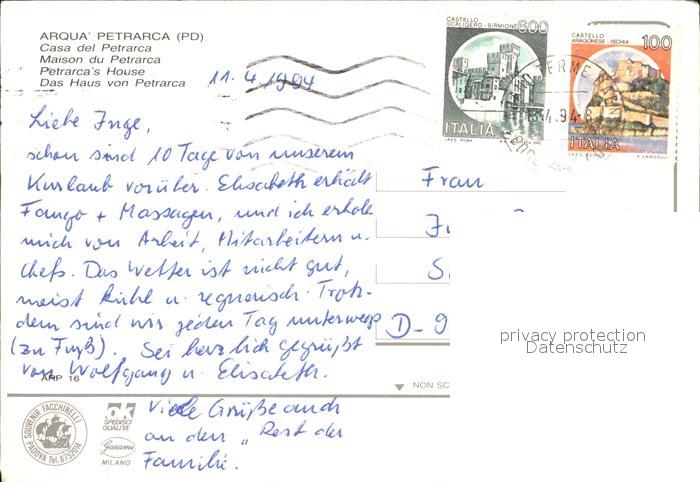 ARQUA' PETRARCA (PD)
Casa del Petrarca
Maison du Petrarca
Petrarca's House
Das Haus von Petrarca
11.4.1994
CASTELLO
SCALIGERO - SIRMIONE
600
ITALIA
CASTELLO
ARAGONESE - ISCHIA
100
ITALIA
Liebe Inge,
schon sind 10 Tage von unserem
Kurlaub vorüber. Elisabeth erhält
Fango + Massagen, und ich erhole
mich von Arbeit, Mitarbeitern u.
Chefs. Das Wetter ist nicht gut,
meist kühl u. regnerisch. Trotz-
dem sind wir jeden Tag unterwegs
(zu Fuß). Sei herzlich gegrüßt
von Wolfgang u. Elisabeth.
Viele Grüße auch
an den "Rest der
Familie.
Frau
D-9
privacy protection
Datenschutz
ARP 16
NON SC
SOUVENIR FACCHINELLI
PADOVA Tel. 8732014
OK
SPEDISCI
QUALITÀ
Garami
MILANO